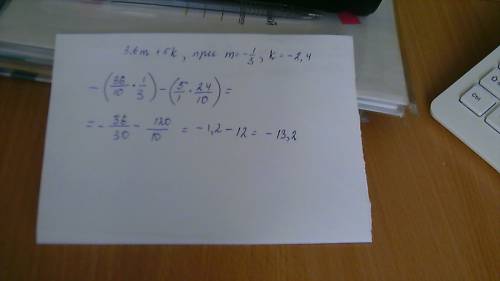 3,6m + 5k, при m = -1/3, k = -2,4
-(36/10 · 1/3) - (5/1 · 24/10) =
= - 36/30 - 120/10 = -1,2 - 12 = -13,2